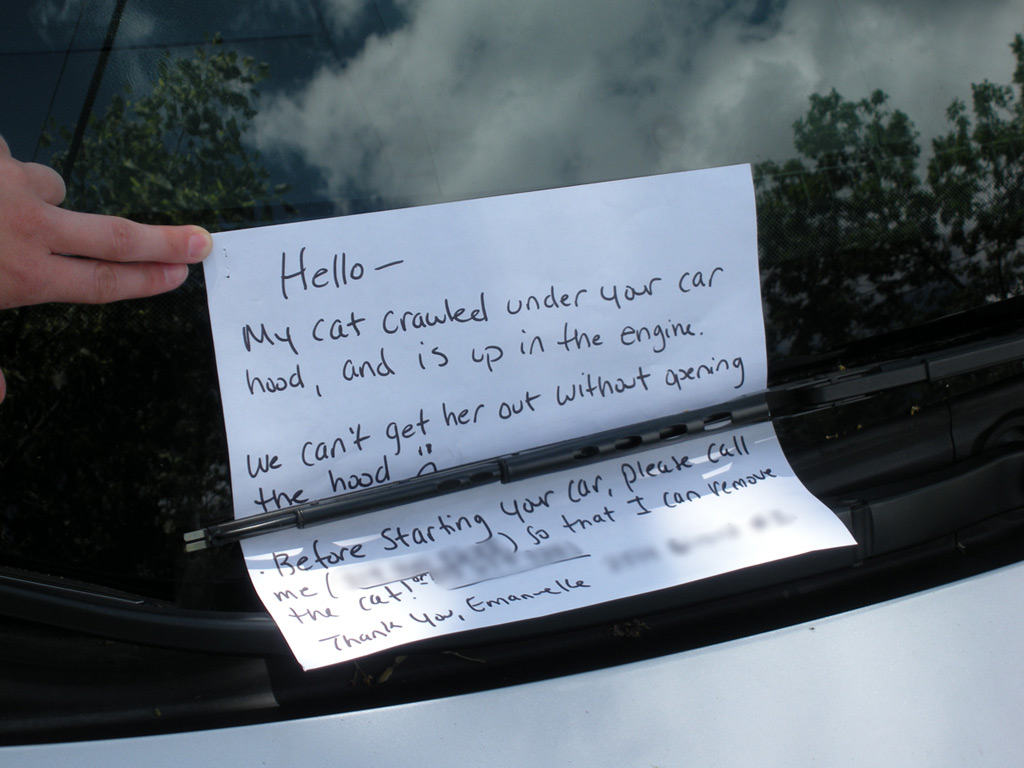 Hello —
My cat crawled under your car
hood, and is up in the engine.
We can't get her out without opening
the hood
. Before starting your car, please call
me ( ) so that I can remove
the cat! or
Thank You, Emanuelle